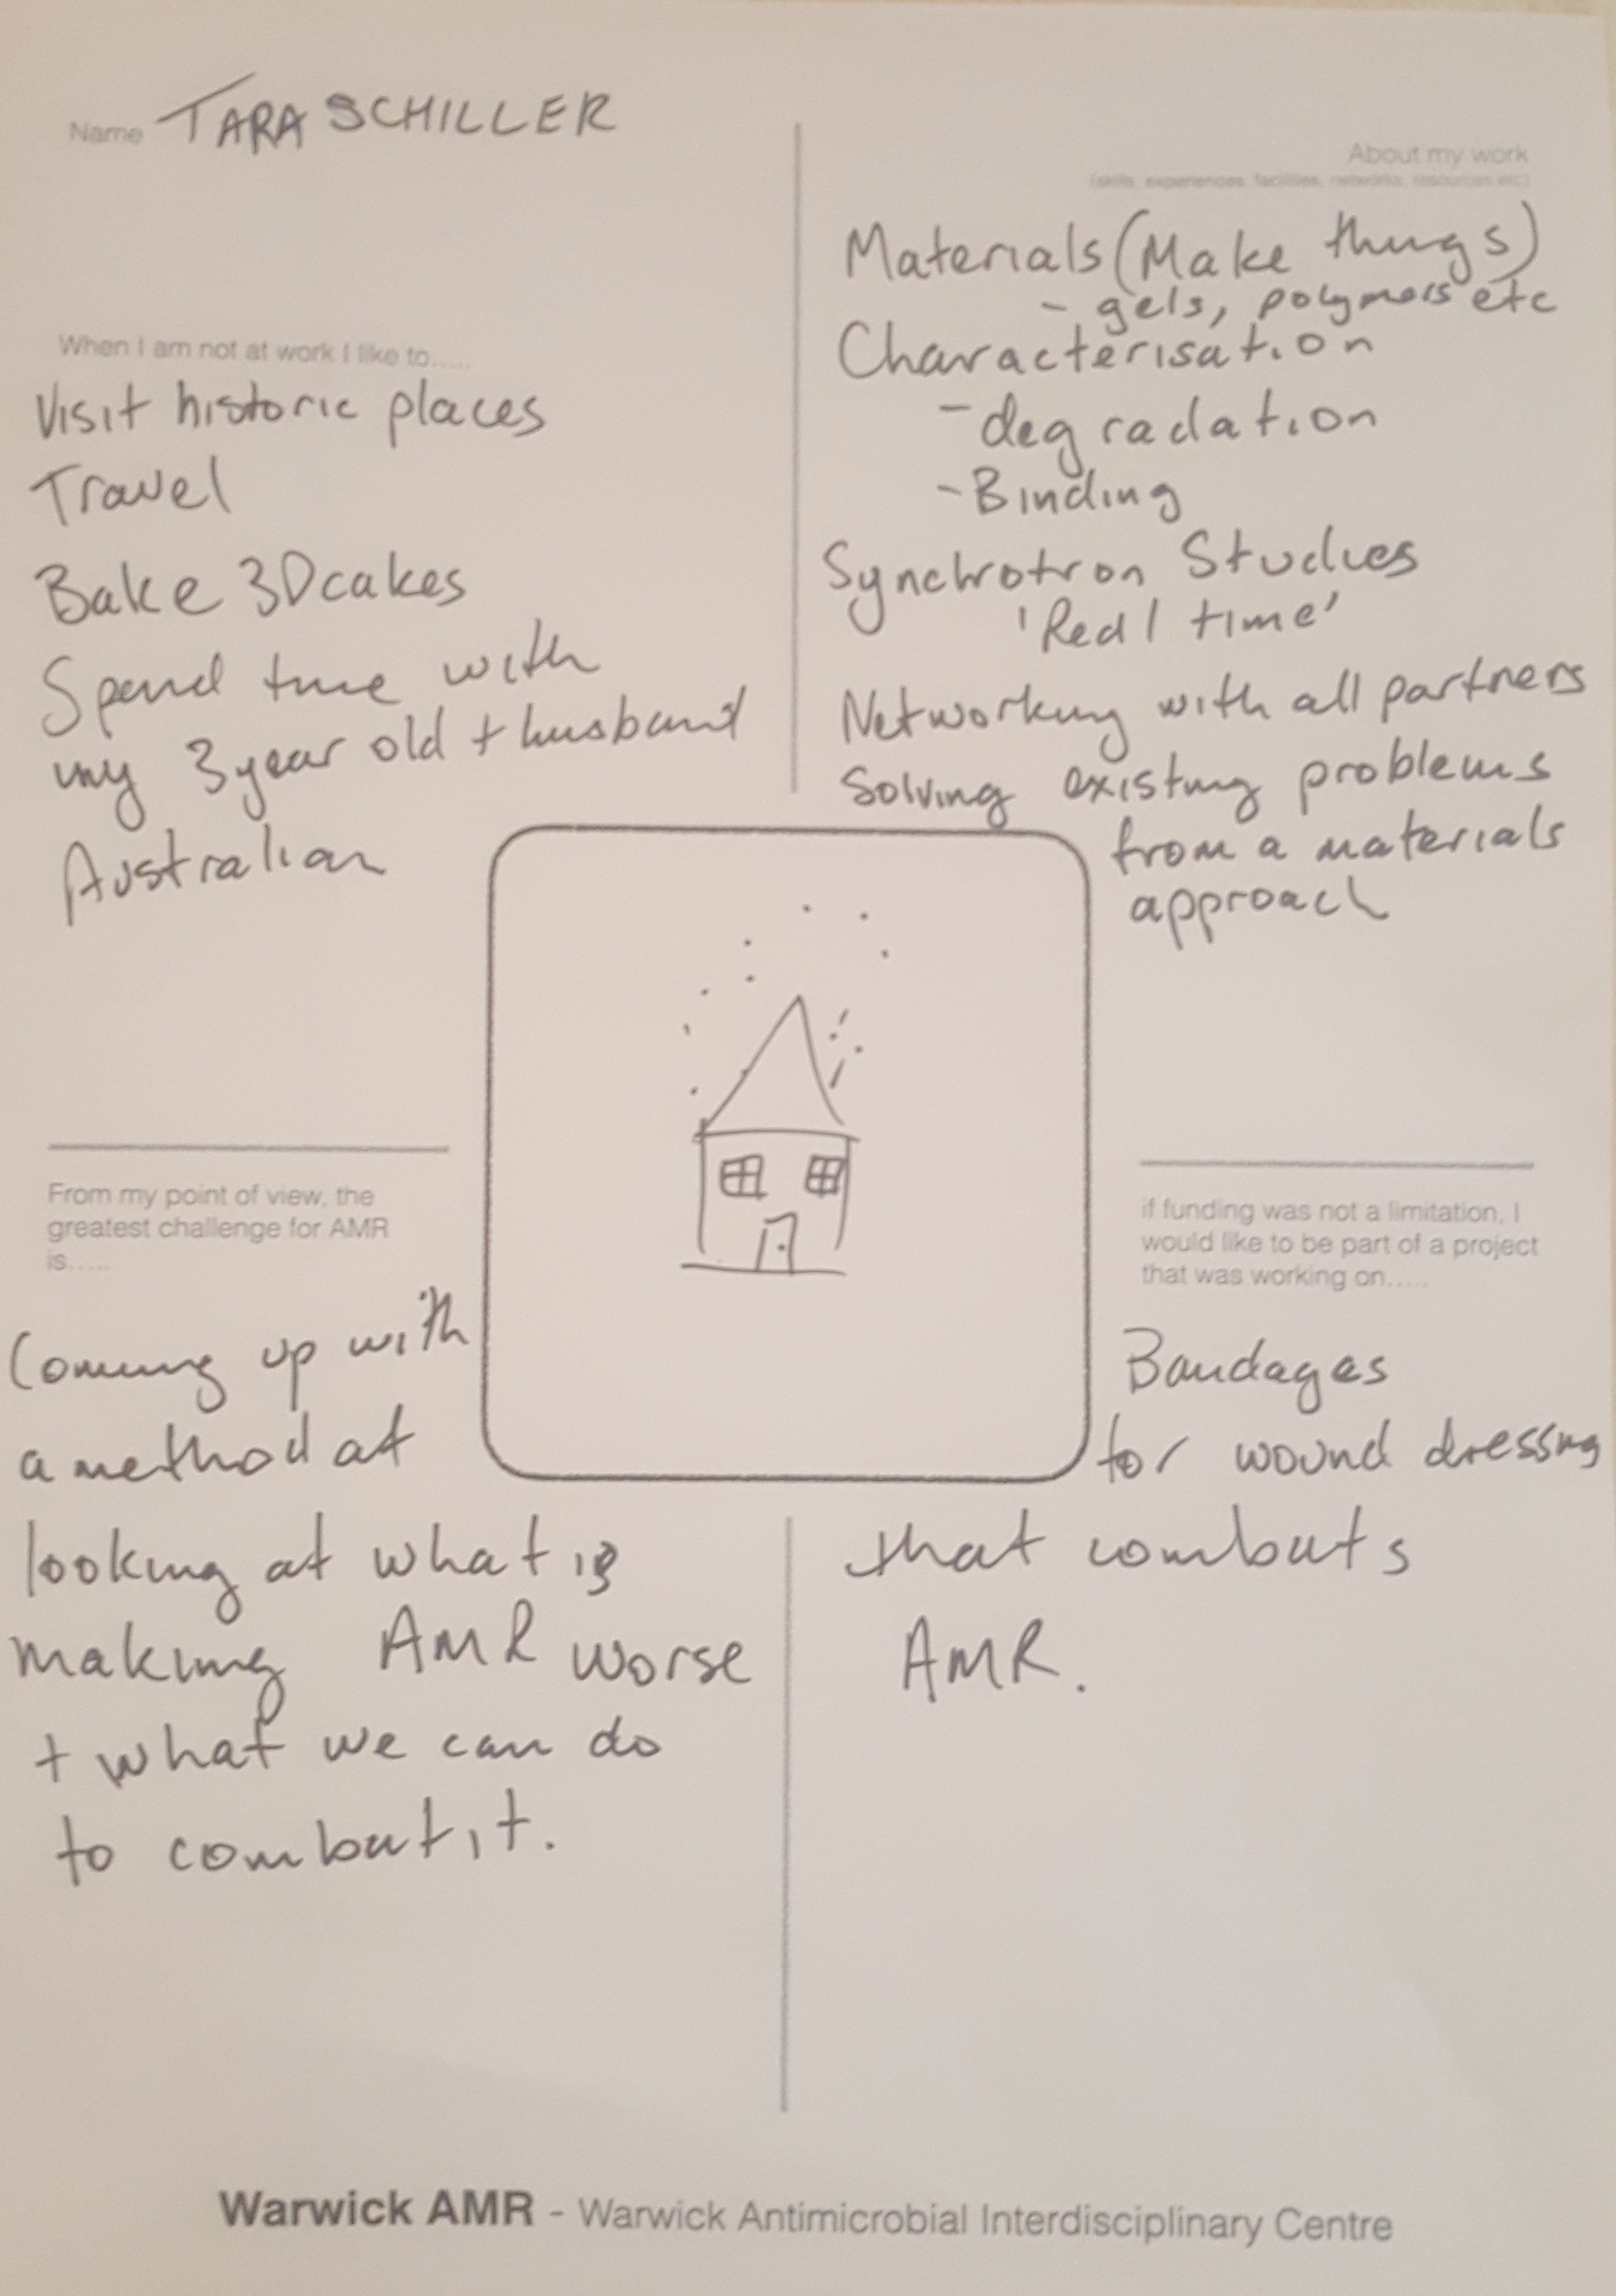 Name TARA SCHILLER
When I am not at work I like to.....
Visit historic places
Travel
Bake 3D cakes
Spend time with
my 3 year old + husband
Australian
About my work
(skills, experiences, facilities, networks, resources etc)
Materials (Make things)
- gels, polymers etc
Characterisation
- degradation
- Binding
Synchrotron Studies
'Real time'
Networking with all partners
Solving existing problems
from a materials
approach
From my point of view, the
greatest challenge for AMR
is.....
Coming up with
a method at
looking at what is
making AMR worse
+ what we can do
to combat it.
if funding was not a limitation, I
would like to be part of a project
that was working on.....
Bandages
for wound dressing
that combats
AMR.
Warwick AMR - Warwick Antimicrobial Interdisciplinary Centre